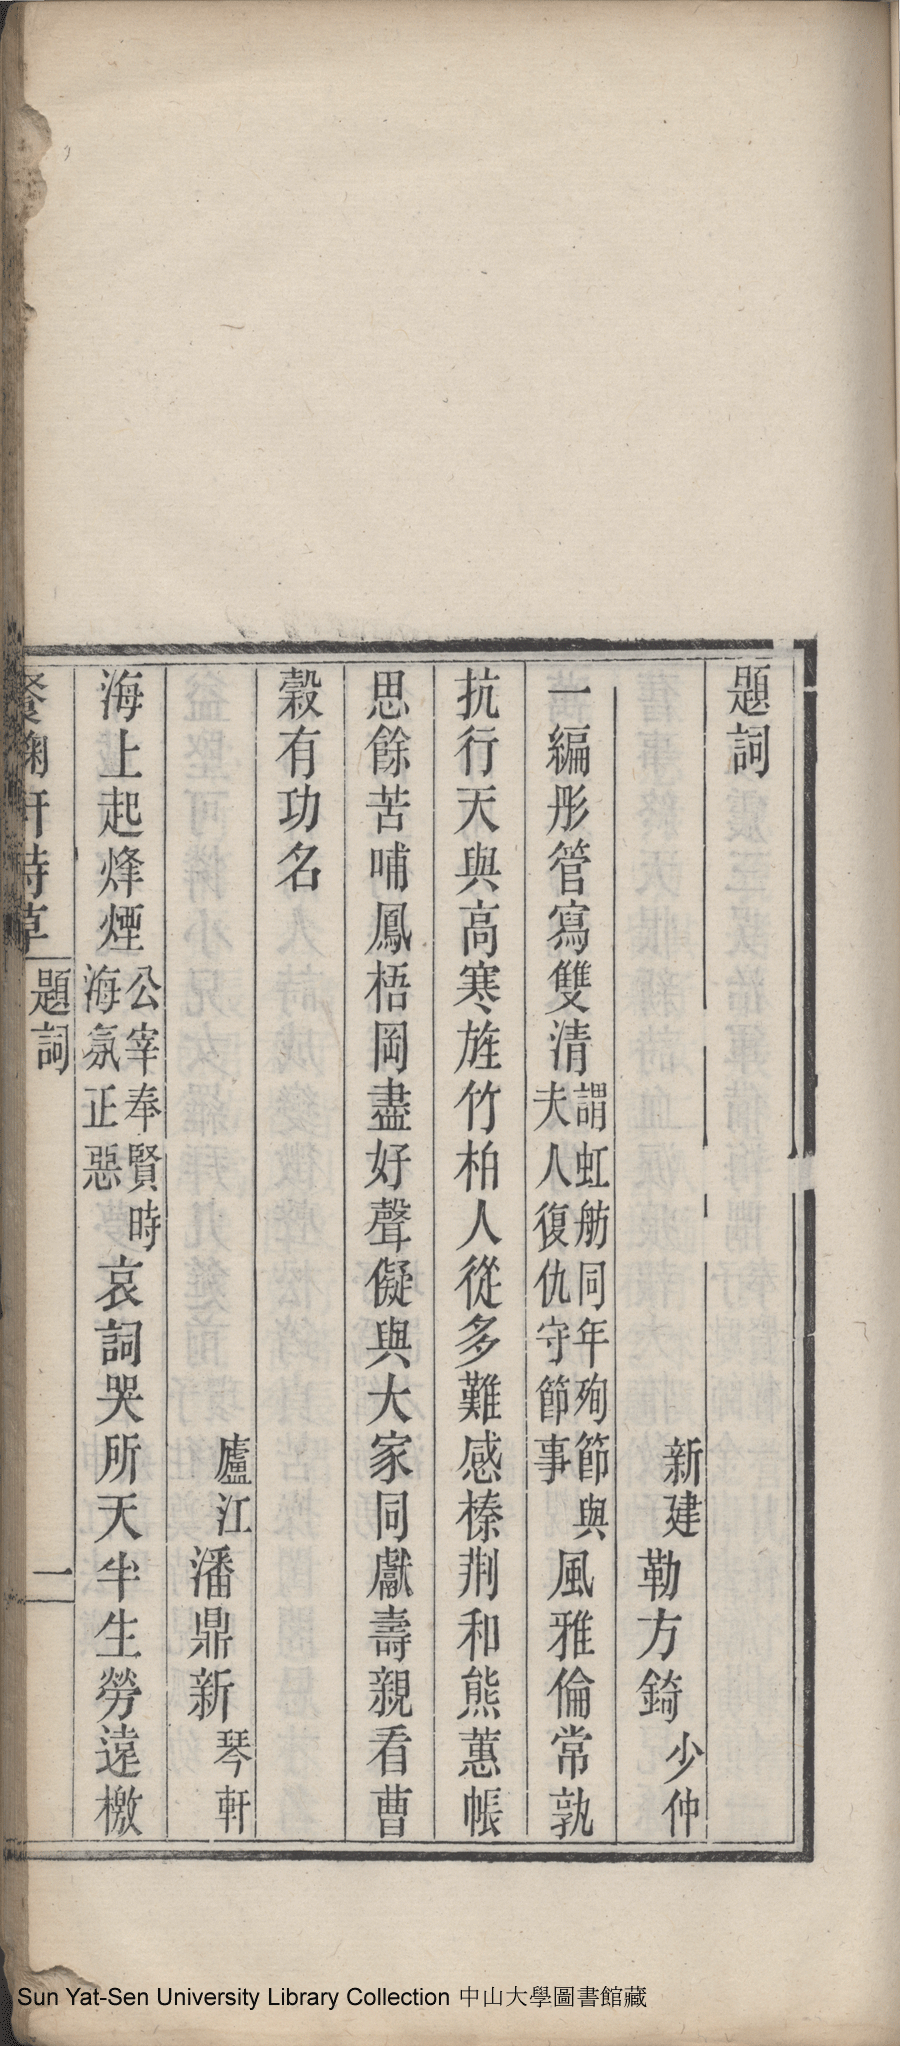 題詞
新建勒方錡少仲
一編彤管寫雙清謂虹舫同年殉節與夫人復仇守節事風雅倫常孰
抗行天與高寒旌竹柏人從多難感榛荆和熊蕙帳
思餘苦哺鳳梧岡盡好聲儗與大家同獻壽親看曹
穀有功名
廬江潘鼎新琴軒
海上起烽煙公宰奉賢時海氛正惡哀詞哭所天半生勞遠檄
餐菊軒詩草
題詞
一
Sun Yat-Sen University Library Collection 中山大學圖書館藏